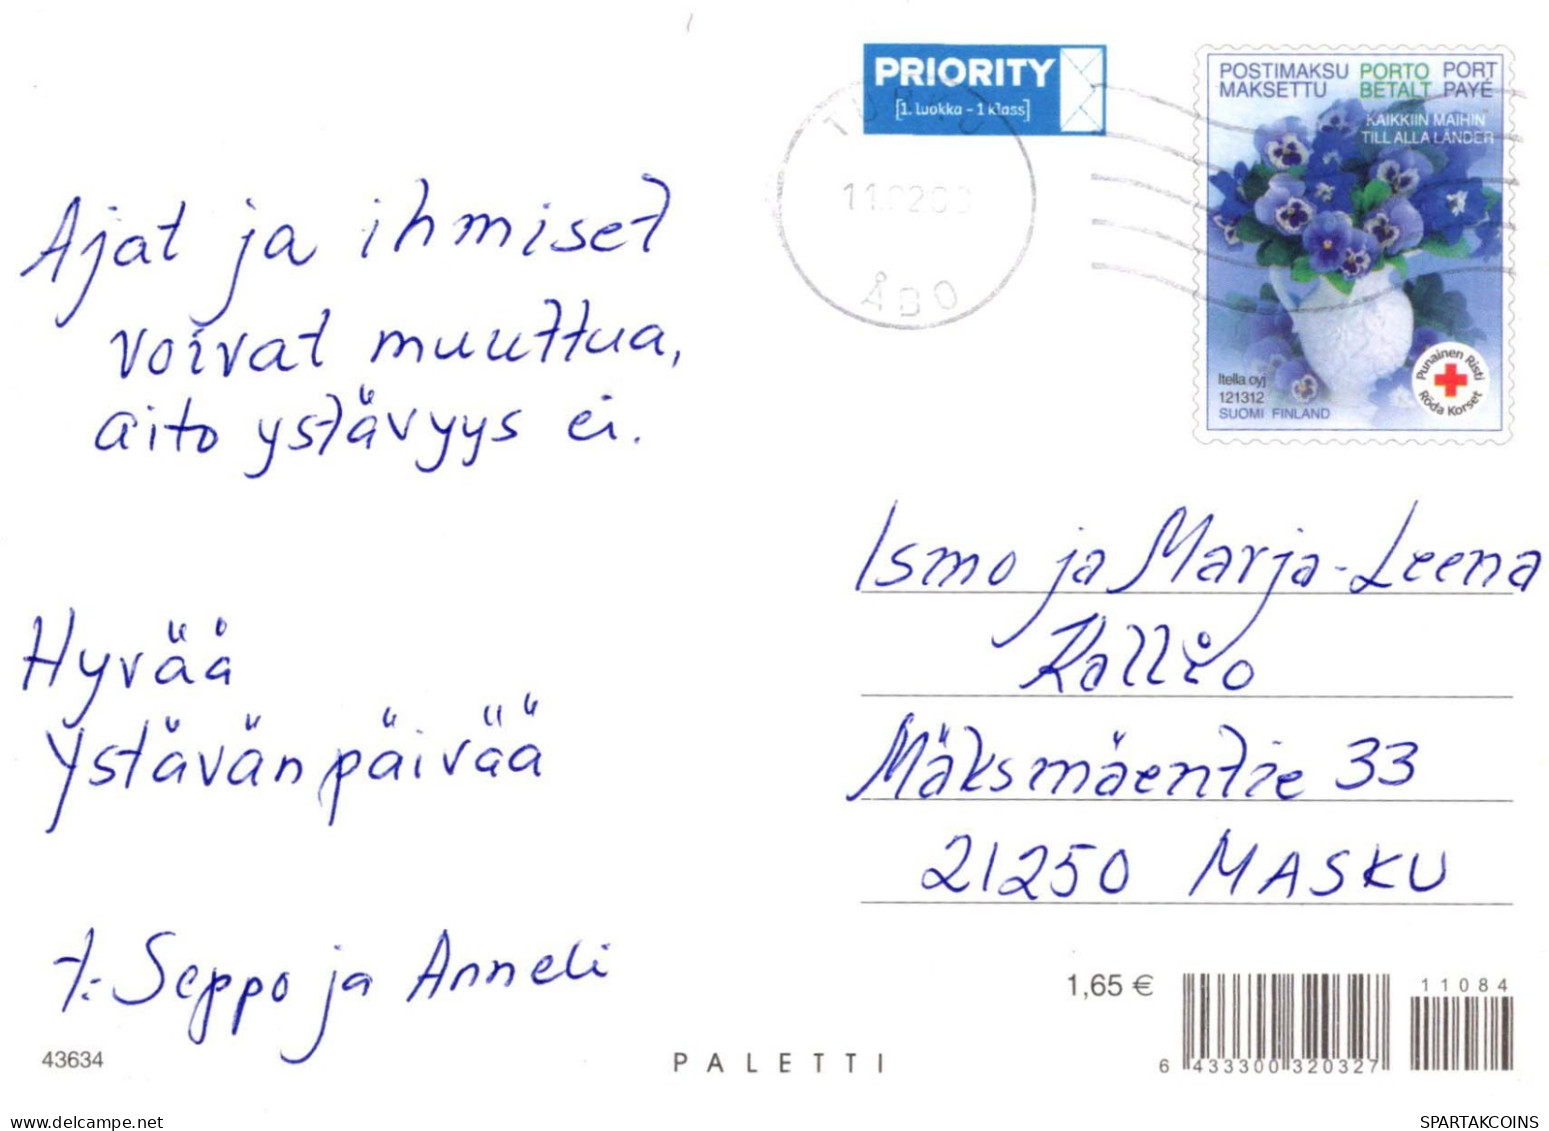 Ajat ja ihmiset
voivat muuttua,
aito ystävyys ei.
Hyvää
Ystävänpäivää
t: Seppo ja Anneli
43634
PALETTI
PRIORITY
[1. luokka - 1 klass]
TURKU
ÅBO
POSTIMAKSU PORTO PORT
MAKSETTU BETALT PAYÉ
KAIKKIIN MAIHIN
TILL ALLA LÄNDER
Itella oyj
121312
SUOMI FINLAND
Punainen Risti
Röda Korset
Ismo ja Marja-Leena
Kallio
Mäksmäentie 33
21250 MASKU
1,65 €
11084
6 433300 320327
www.delcampe.net
SPARTAKCOINS